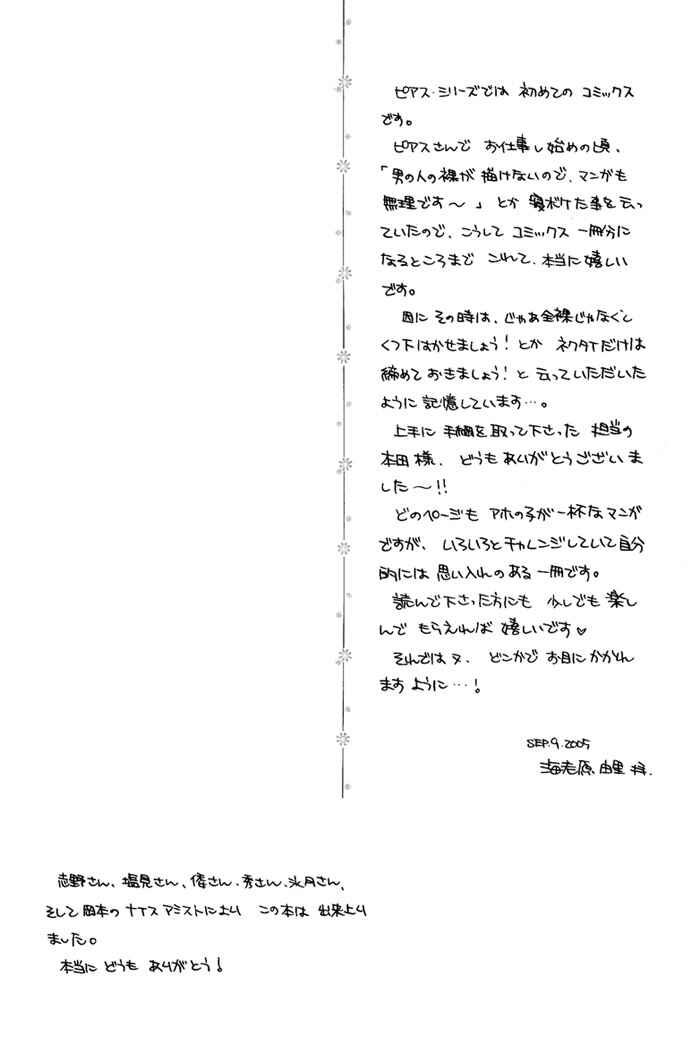 ピアス・シリーズでは 初めての コミックス
です。
ピアスさんで お仕事し始めの頃、
「男の人の裸が 描けないので、マンガも
無理です〜」とか 寝ボケた事を云っ
ていたので、こうして コミックス 一冊分に
なるところまで これて、本当に嬉しい
です。
因に その時は、じゃあ全裸じゃなくし
くつ下はかせましょう!とか ネクタイだけは
締めて おきましょう!と 云っていただいた
ように 記憶しています…。
上手に 手綱を 取って下さった 担当の
本田様、どうもありがとうございま
した〜!!
どのページも アホの子が一杯なマンガ
ですが、いろいろとチャレンジしていて自分
的には 思い入れのある 一冊です。
読んで下さった方にも 少しでも 楽し
んで もらえれば 嬉しいです♥
それではヌ、どこかで お目にかかれ
ます ように…!
SEP.9.2005
海老原 由里 拝.
志野さん、塩見さん、倭さん、秀さん、氷月さん、
そして 岡本の ナイス アミストにより この本は 出来上り
ました。
本当に どうも ありがとう!